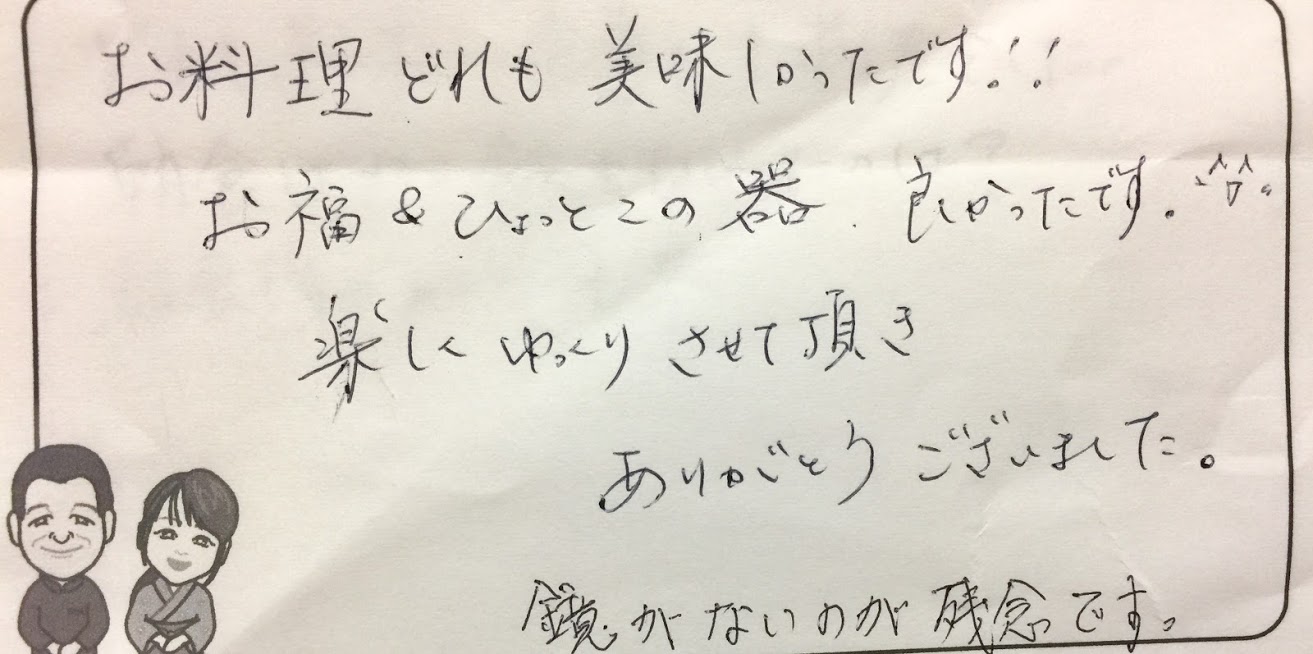 お料理 どれも 美味しかったです!!
お福 & ひょっとこの 器. 良かったです. ^^
楽しくゆっくり させて頂き
ありがとう ございました。
鏡がないのが 残念です。